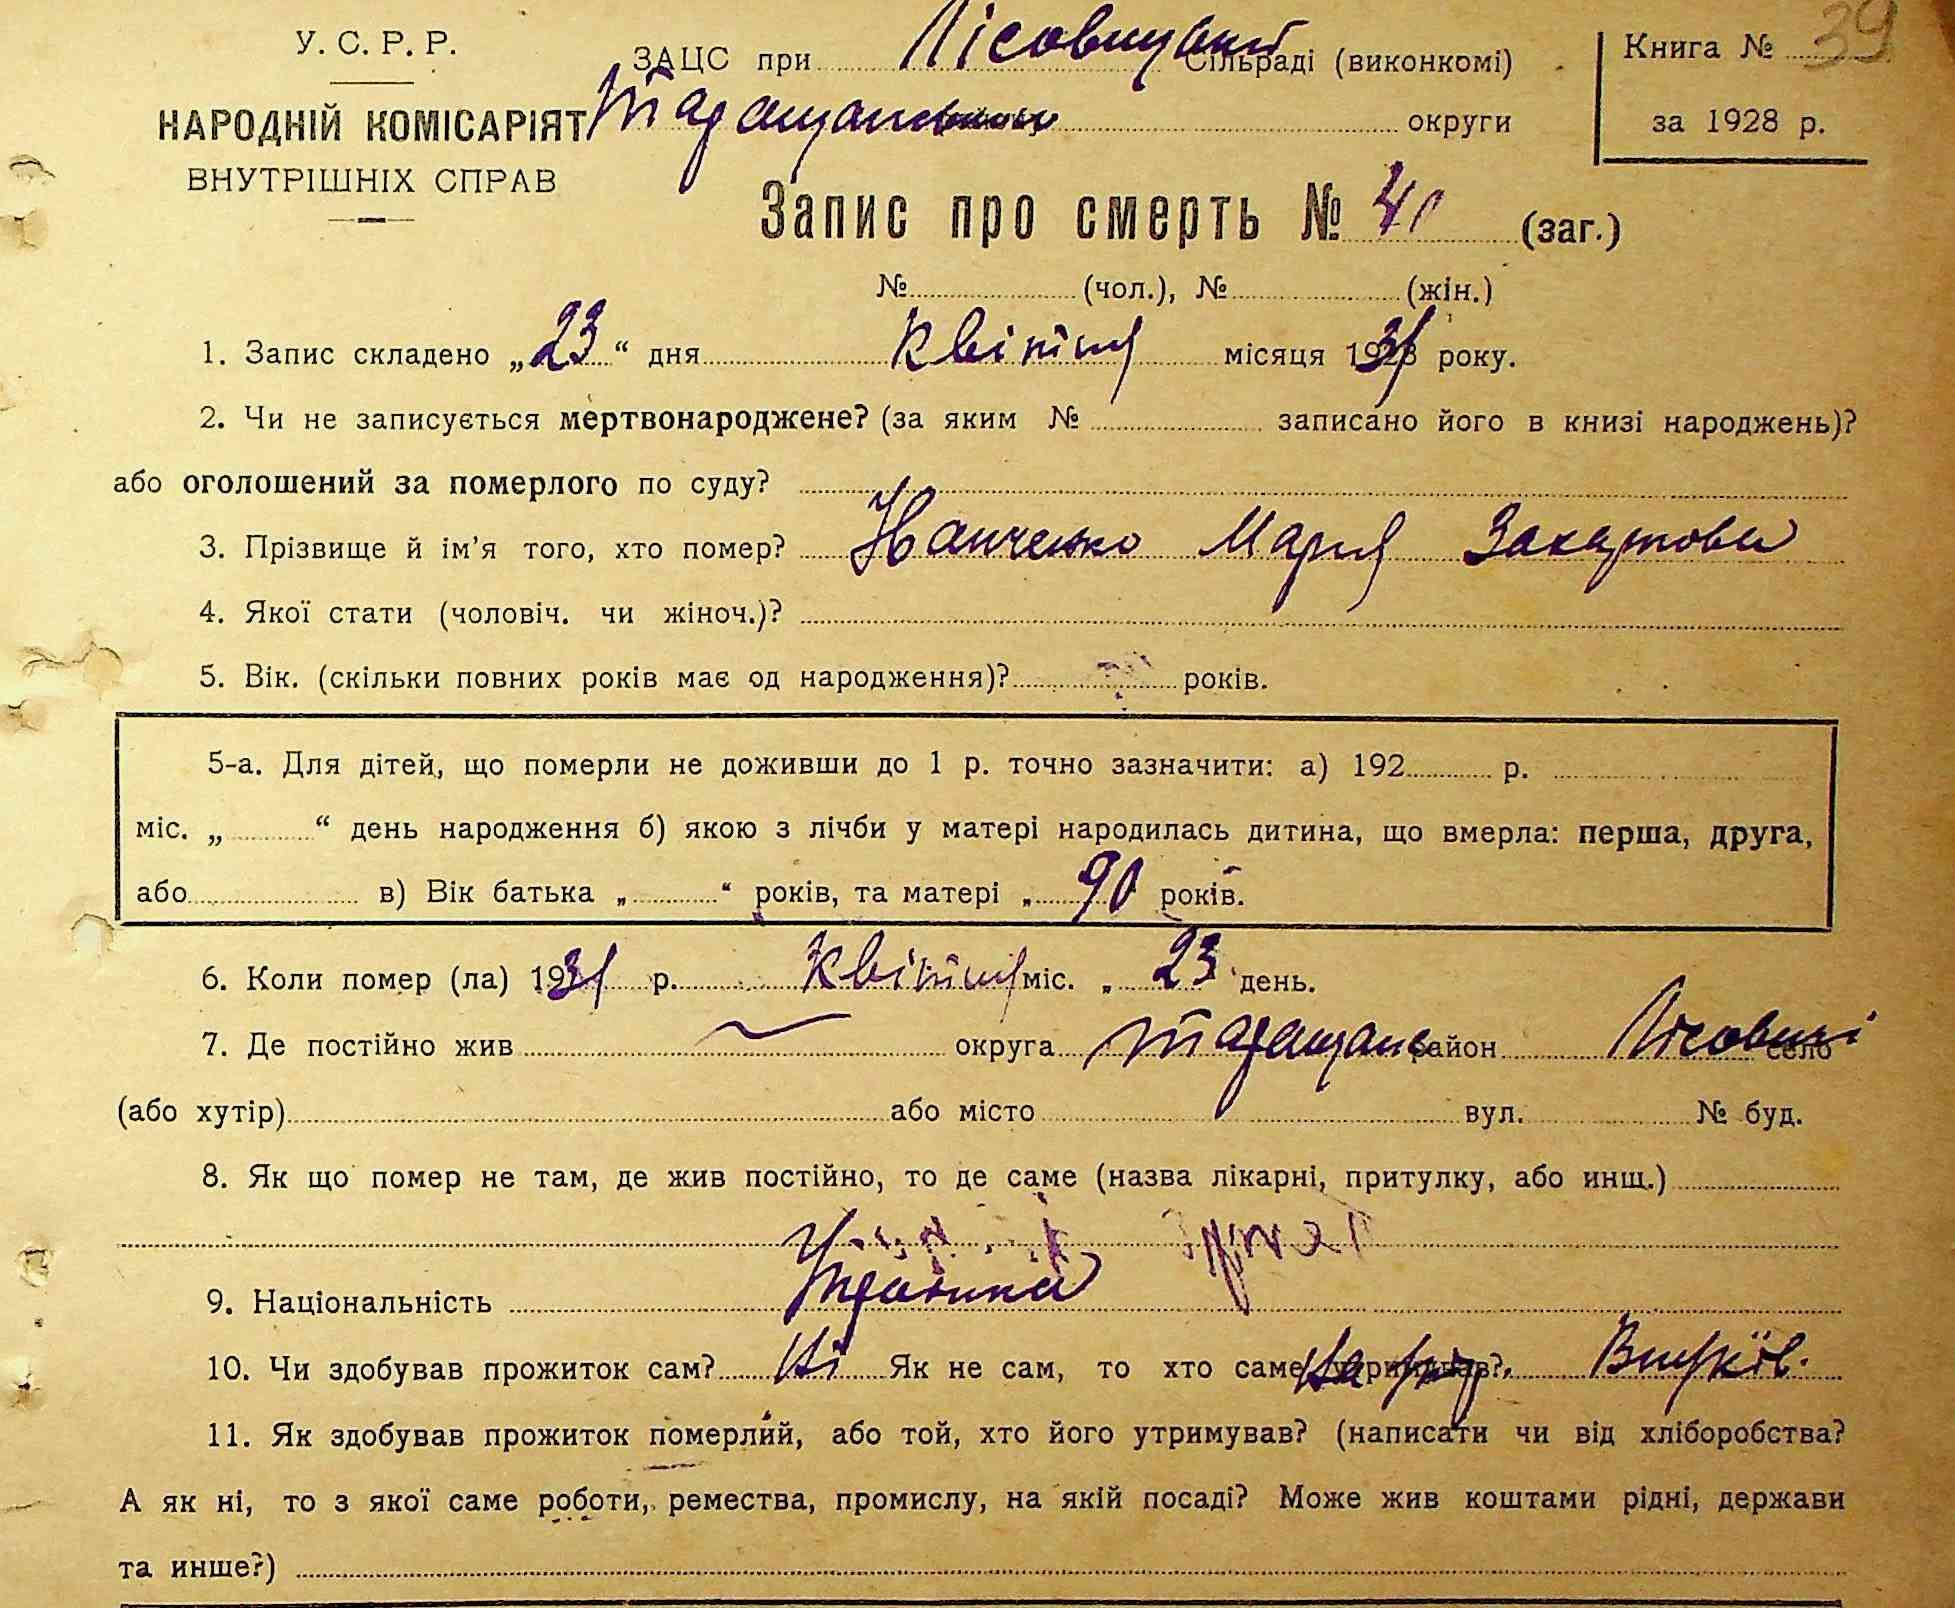 У. С. Р. Р.
НАРОДНІЙ КОМІСАРІЯТ
ВНУТРІШНІХ СПРАВ
ЗАЦС при Лісовицькій Сільраді (виконкомі)
Таращанського округи
Книга № 39
за 1928 р.
Запис про смерть № 41 (заг.)
№ (чол.), № (жін.)
1. Запис складено „23“ дня Квітня місяця 1931 року.
2. Чи не записується мертвонароджене? (за яким № записано його в книзі народжень)?
або оголошений за померлого по суду?
3. Прізвище й ім’я того, хто помер? Мария
4. Якої стати (чоловіч. чи жіноч.)?
5. Вік. (скільки повних років має од народження)? років.
5-а. Для дітей, що померли не доживши до 1 р. точно зазначити: а) 192 р.
міс. „ “ день народження б) якою з лічби у матері народилась дитина, що вмерла: перша, друга,
або в) Вік батька „ “ років, та матері „ 90 років.
6. Коли помер (ла) 1931 р. Квітня міс. „ 23 день.
7. Де постійно жив округа Таращанс район Лісовичі село
(або хутір) або місто вул. № буд.
8. Як що помер не там, де жив постійно, то де саме (назва лікарні, притулку, або инщ.)
9. Національність Українка
10. Чи здобував прожиток сам? Ні Як не сам, то хто саме утримував?
11. Як здобував прожиток померлий, або той, хто його утримував? (написати чи від хліборобства?
А як ні, то з якої саме роботи, ремества, промислу, на якій посаді? Може жив коштами рідні, держави
та инше?)